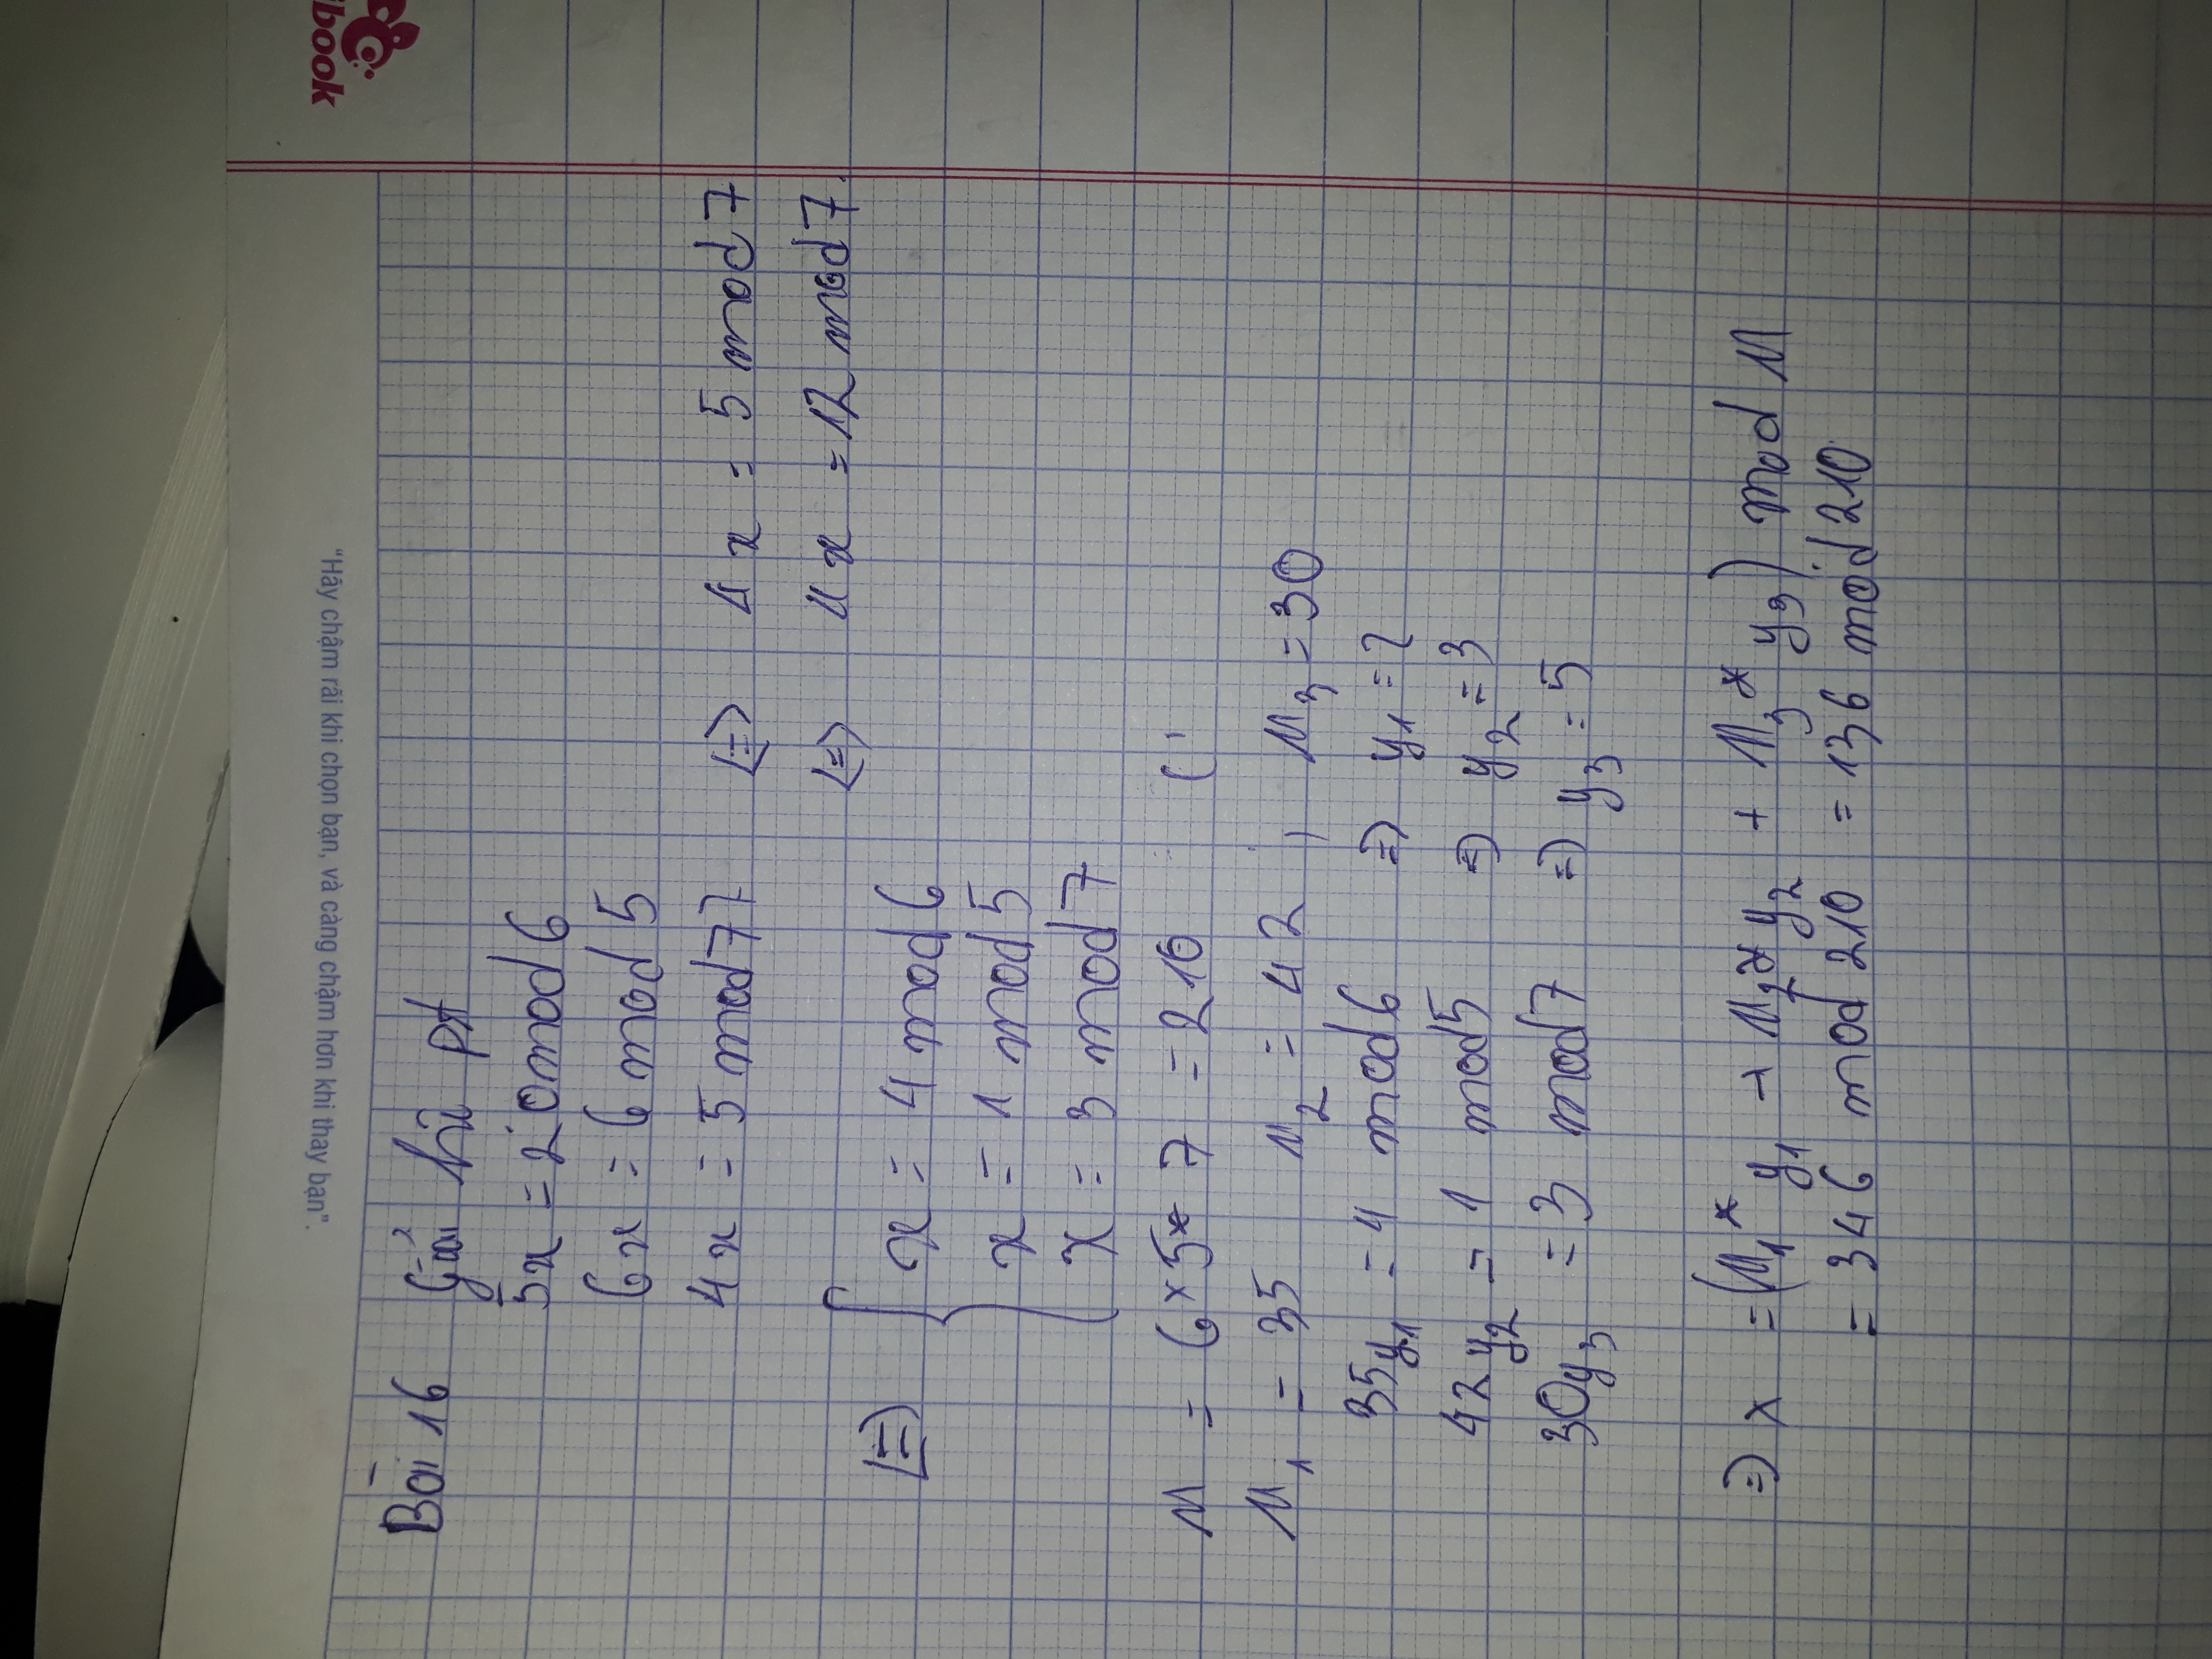 "Hãy chậm rãi khi chọn bạn, và càng chậm hơn khi thay bạn".
book
Bài 16 Giải hệ pt
5x = 20 mod 6
6x = 6 mod 5
4x = 5 mod 77 <=> 4x = 5 mod 7
<=> 4x = 12 mod 7
<=> { x = 4 mod 6
x = 1 mod 5
x = 3 mod 7
M = 6 * 5 * 7 = 210 (
M1 = 35 M2 = 42 , M3 = 30
35y1 = 4 mod 6 => y1 = 2
42y2 = 1 mod 5 => y2 = 3
30y3 = 3 mod 7 => y3 = 5
=> x = (M1 * y1 + M2 * y2 + M3 * y3) mod M
= 346 mod 210 = 136 mod 210